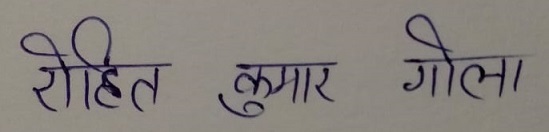 रोहित कुमार गोला